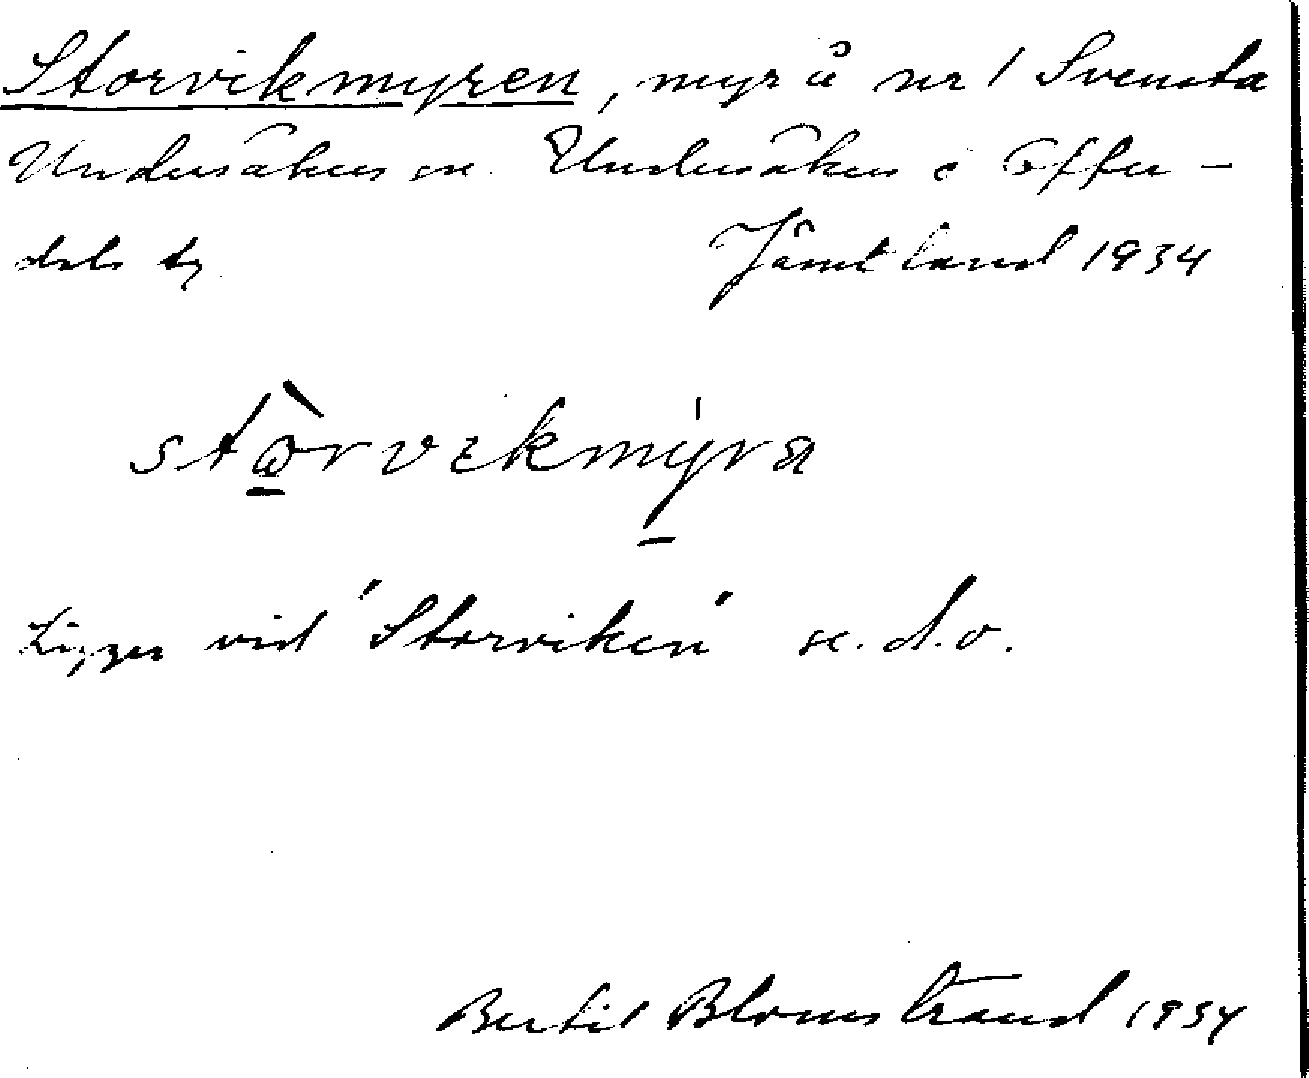 Storvikmyren, myr å nr 1 Svensta
Undersåkers sn. Undersåkers o Offer-
dals tg Jämtland 1934
stòrvikmýra
Ligger vid "Storviken" se. d.o.
Bertil Blomstrand 1934